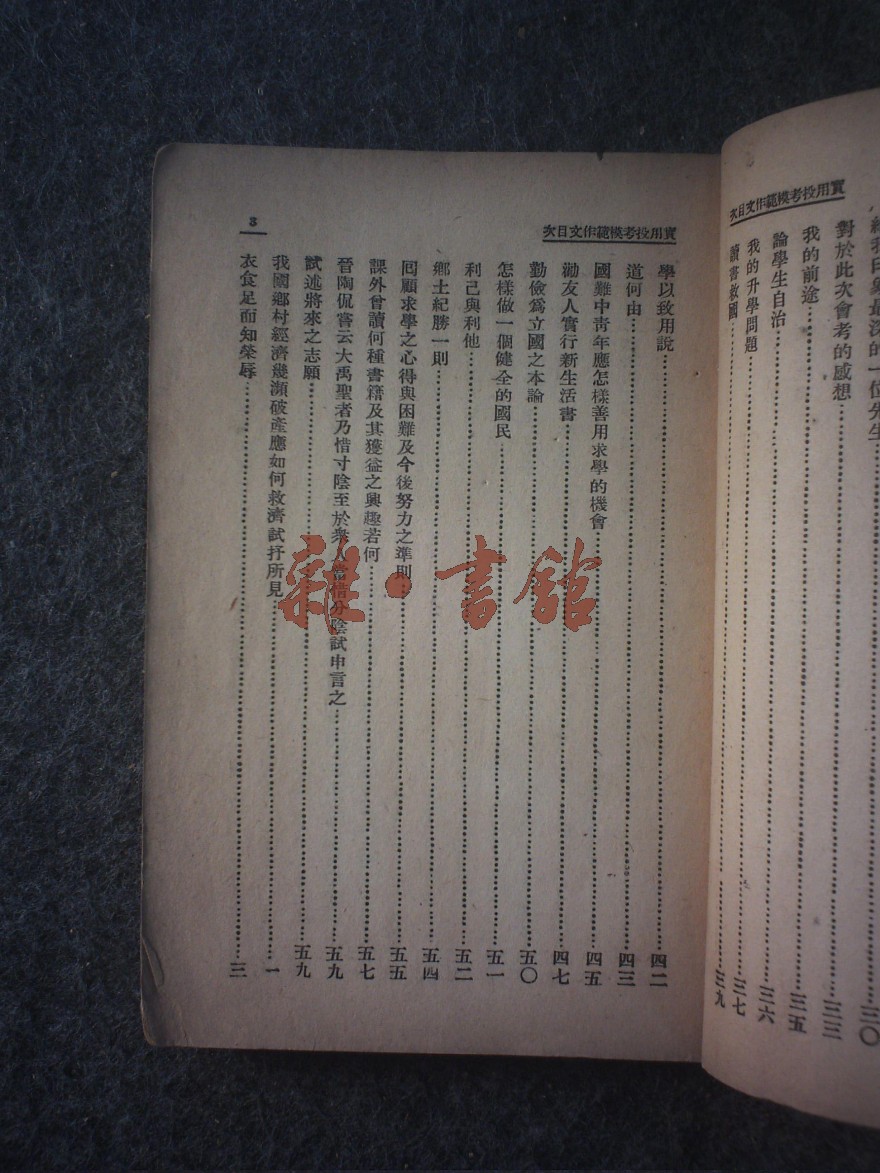 實用投考模範作文目次
給我印象最深的一位先生……三〇
對於此次會考的感想……三三
我的前途……三五
論學生自治……三六
我的升學問題……三七
讀書救國……三九
實用投考模範作文目次
3
學以致用說……四二
道何由……四三
國難中靑年應怎樣善用求學的機會……四五
勸友人實行新生活書……四七
勤儉爲立國之本論……五〇
怎樣做一個健全的國民……五一
利己與利他……五二
鄉土紀勝一則……五四
囘顧求學之心得與困難及今後努力之準則……五五
課外曾讀何種書籍及其獲益之興趣若何……五七
晉陶侃嘗云大禹聖者乃惜寸陰至於衆人當惜分陰試申言之……五九
試述將來之志願……五九
我國鄉村經濟幾瀕破產應如何救濟試抒所見……一
衣食足而知榮辱……三
雜·書館